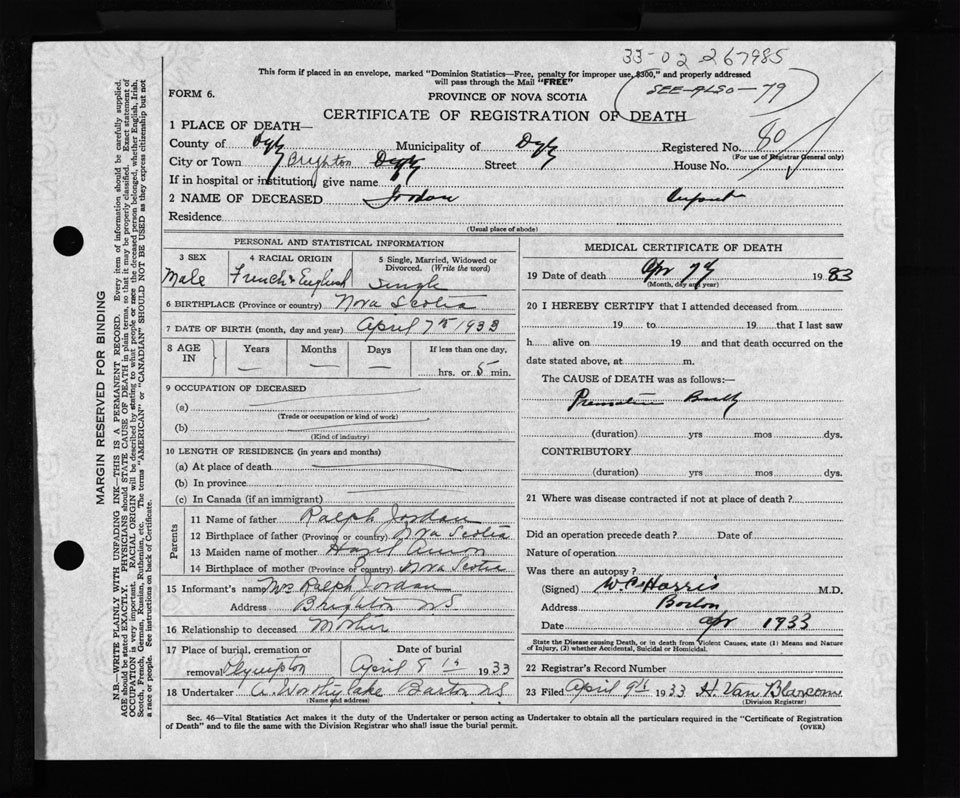 33-02-267985
This form if placed in an envelope, marked "Dominion Statistics—Free, penalty for improper use, $300," and properly addressed
will pass through the Mail "FREE"
SEE-ALSO-79
FORM 6.
PROVINCE OF NOVA SCOTIA
CERTIFICATE OF REGISTRATION OF DEATH
1 PLACE OF DEATH—
County of Digby Municipality of Digby Registered No. 80
(For use of Registrar General only)
City or Town Brighton Digby Street House No.
If in hospital or institution, give name
2 NAME OF DECEASED Jordan Infant
Residence
(Usual place of abode)
PERSONAL AND STATISTICAL INFORMATION
3 SEX 4 RACIAL ORIGIN 5 Single, Married, Widowed or Divorced. (Write the word)
Male French & English Single
6 BIRTHPLACE (Province or country) Nova Scotia
7 DATE OF BIRTH (month, day and year) April 7th 1933
8 AGE IN Years Months Days If less than one day,
— — — hrs. or 5 min.
9 OCCUPATION OF DECEASED
(a)
(Trade or occupation or kind of work)
(b)
(Kind of industry)
10 LENGTH OF RESIDENCE (in years and months)
(a) At place of death
(b) In province
(c) In Canada (if an immigrant)
Parents
11 Name of father Ralph Jordan
12 Birthplace of father (Province or country) Nova Scotia
13 Maiden name of mother Hazel
14 Birthplace of mother (Province or country) Nova Scotia
15 Informant's name Mrs Ralph Jordan
Address Brighton N S
16 Relationship to deceased Mother
17 Place of burial, cremation or removal Plympton Date of burial April 8 th 1933
18 Undertaker A. Worthylake Barton N.S.
(Name and address)
MEDICAL CERTIFICATE OF DEATH
19 Date of death Apr 7th 1983
(Month, day and year)
20 I HEREBY CERTIFY that I attended deceased from
19 to 19 that I last saw
h alive on 19 and that death occurred on the
date stated above, at m.
The CAUSE of DEATH was as follows:—
Premature Birth
(duration) yrs mos dys.
CONTRIBUTORY
(duration) yrs mos dys.
21 Where was disease contracted if not at place of death?
Did an operation precede death? Date of
Nature of operation
Was there an autopsy?
(Signed) W. C. Harris M.D.
Address Barton
Date Apr 1933
State the Disease causing Death, or in death from Violent Causes, state (1) Means and Nature
of Injury, (2) whether Accidental, Suicidal or Homicidal.
22 Registrar's Record Number
23 Filed April 9th 1933 H. Van Blarcom
(Division Registrar)
Sec. 46—Vital Statistics Act makes it the duty of the Undertaker or person acting as Undertaker to obtain all the particulars required in the "Certificate of Registration
of Death" and to file the same with the Division Registrar who shall issue the burial permit.
(OVER)
MARGIN RESERVED FOR BINDING
N.B.—WRITE PLAINLY WITH UNFADING INK—THIS IS A PERMANENT RECORD. Every item of information should be carefully supplied.
AGE should be stated EXACTLY. PHYSICIANS should STATE CAUSE OF DEATH in plain terms, so that it may be properly classified. Exact statement of
OCCUPATION is very important. RACIAL ORIGIN will be described by stating to what people or race the deceased person belonged, whether English, Irish,
Scotch, French, German, Russian, Ruthenian, etc. The terms "AMERICAN" or "CANADIAN" SHOULD NOT BE USED as they express citizenship but not
a race or people. See instructions on back of Certificate.